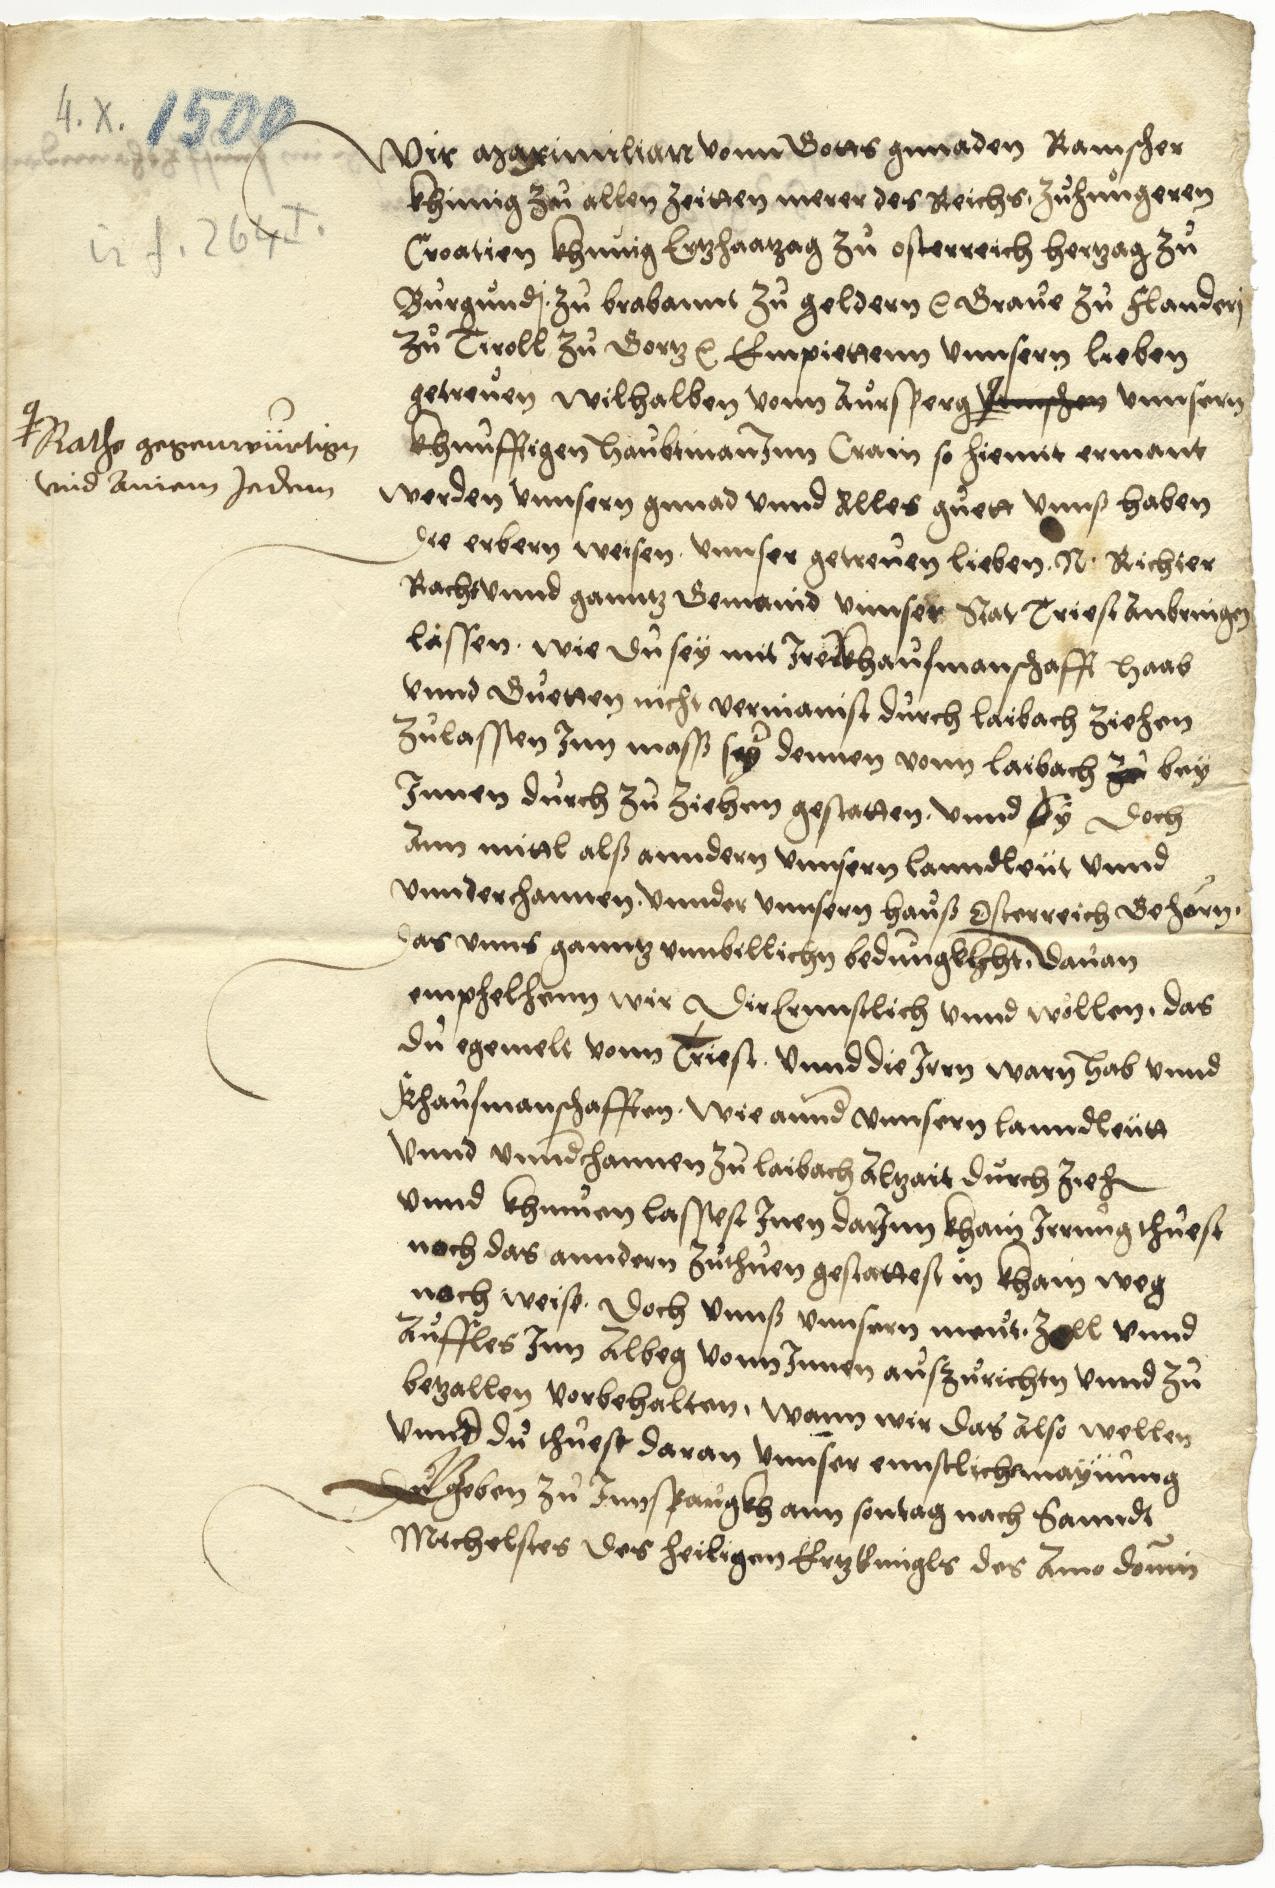 4. X. 1500
in f. 264 I.
Wir Maximilian vonn Gottes gnnaden Ramischer
khinnig zů allen Zeitten merer des Reichs, zů hungeren
Croatien khunig Ertzhaatzag zů osterreich hertzag zů
Burgundj. zů brabannt zů geldern Graůe zů Flandern
zů Tiroll zů Gortz Empiettenn vnnsern lieben
getreůen wilhalben vonn Aůrsperg vnnsern
Rathe gegenwürtigen
vnd ainem Jedem
khunfftigen haůbtman Inn Crain so hiemit ermant
werden vnnsern gnnad vnnd Alles gůett vnnß haben
die erbern weisen. vnnser getreůen lieben. N. Richter
Racht vnnd ganntz Gemaind vnnser Stat Triest Anbringen
lassen. wie dů sey mit Irer khaufmanschafft haab
vnnd Gůetten nicht vermainst důrch laibach ziehen
zůlassen Inn mass sy dennen vonn laibach bey
Innen důrch zů ziehen gestatten. vnnd sy doch
Ann mittl alß anndern vnnsern lanndleüt vnnd
vnnderthannen. vnnder vnnsern haůß Osterreich Gehorn.
das vnns ganntz vnnbillichn bedůngkhcht. daůan
emphelhenn wir Dir Ernnstlich vnnd wöllen, das
dů egemelt vonn Triest. vnnd die Irrn warn hab vnnd
khaůfmanschafften. wie annd vnnsern lanndleütt
vnnd vnndthannen zů laibach Altzait důrch zieh
vnnd khumen lassest Inen darInn khain Irrůng thůest
noch das anndern zůthůen gestattest in khain weg
noch weise. Doch vnnß vnnsern maůt. Zoll vnnd
Aůffles Inn Albeg vonn Innen aůszůrichtn vnnd zů
betzallen vorbehalten, wann wir das Also wellen
vnnd dů thůest daran vnnser ernstliche maynůng
geben zů Innsprůgkh ann sontag nach Sanndt
Michelstes des heiligen Ertzenngls des Anno domin